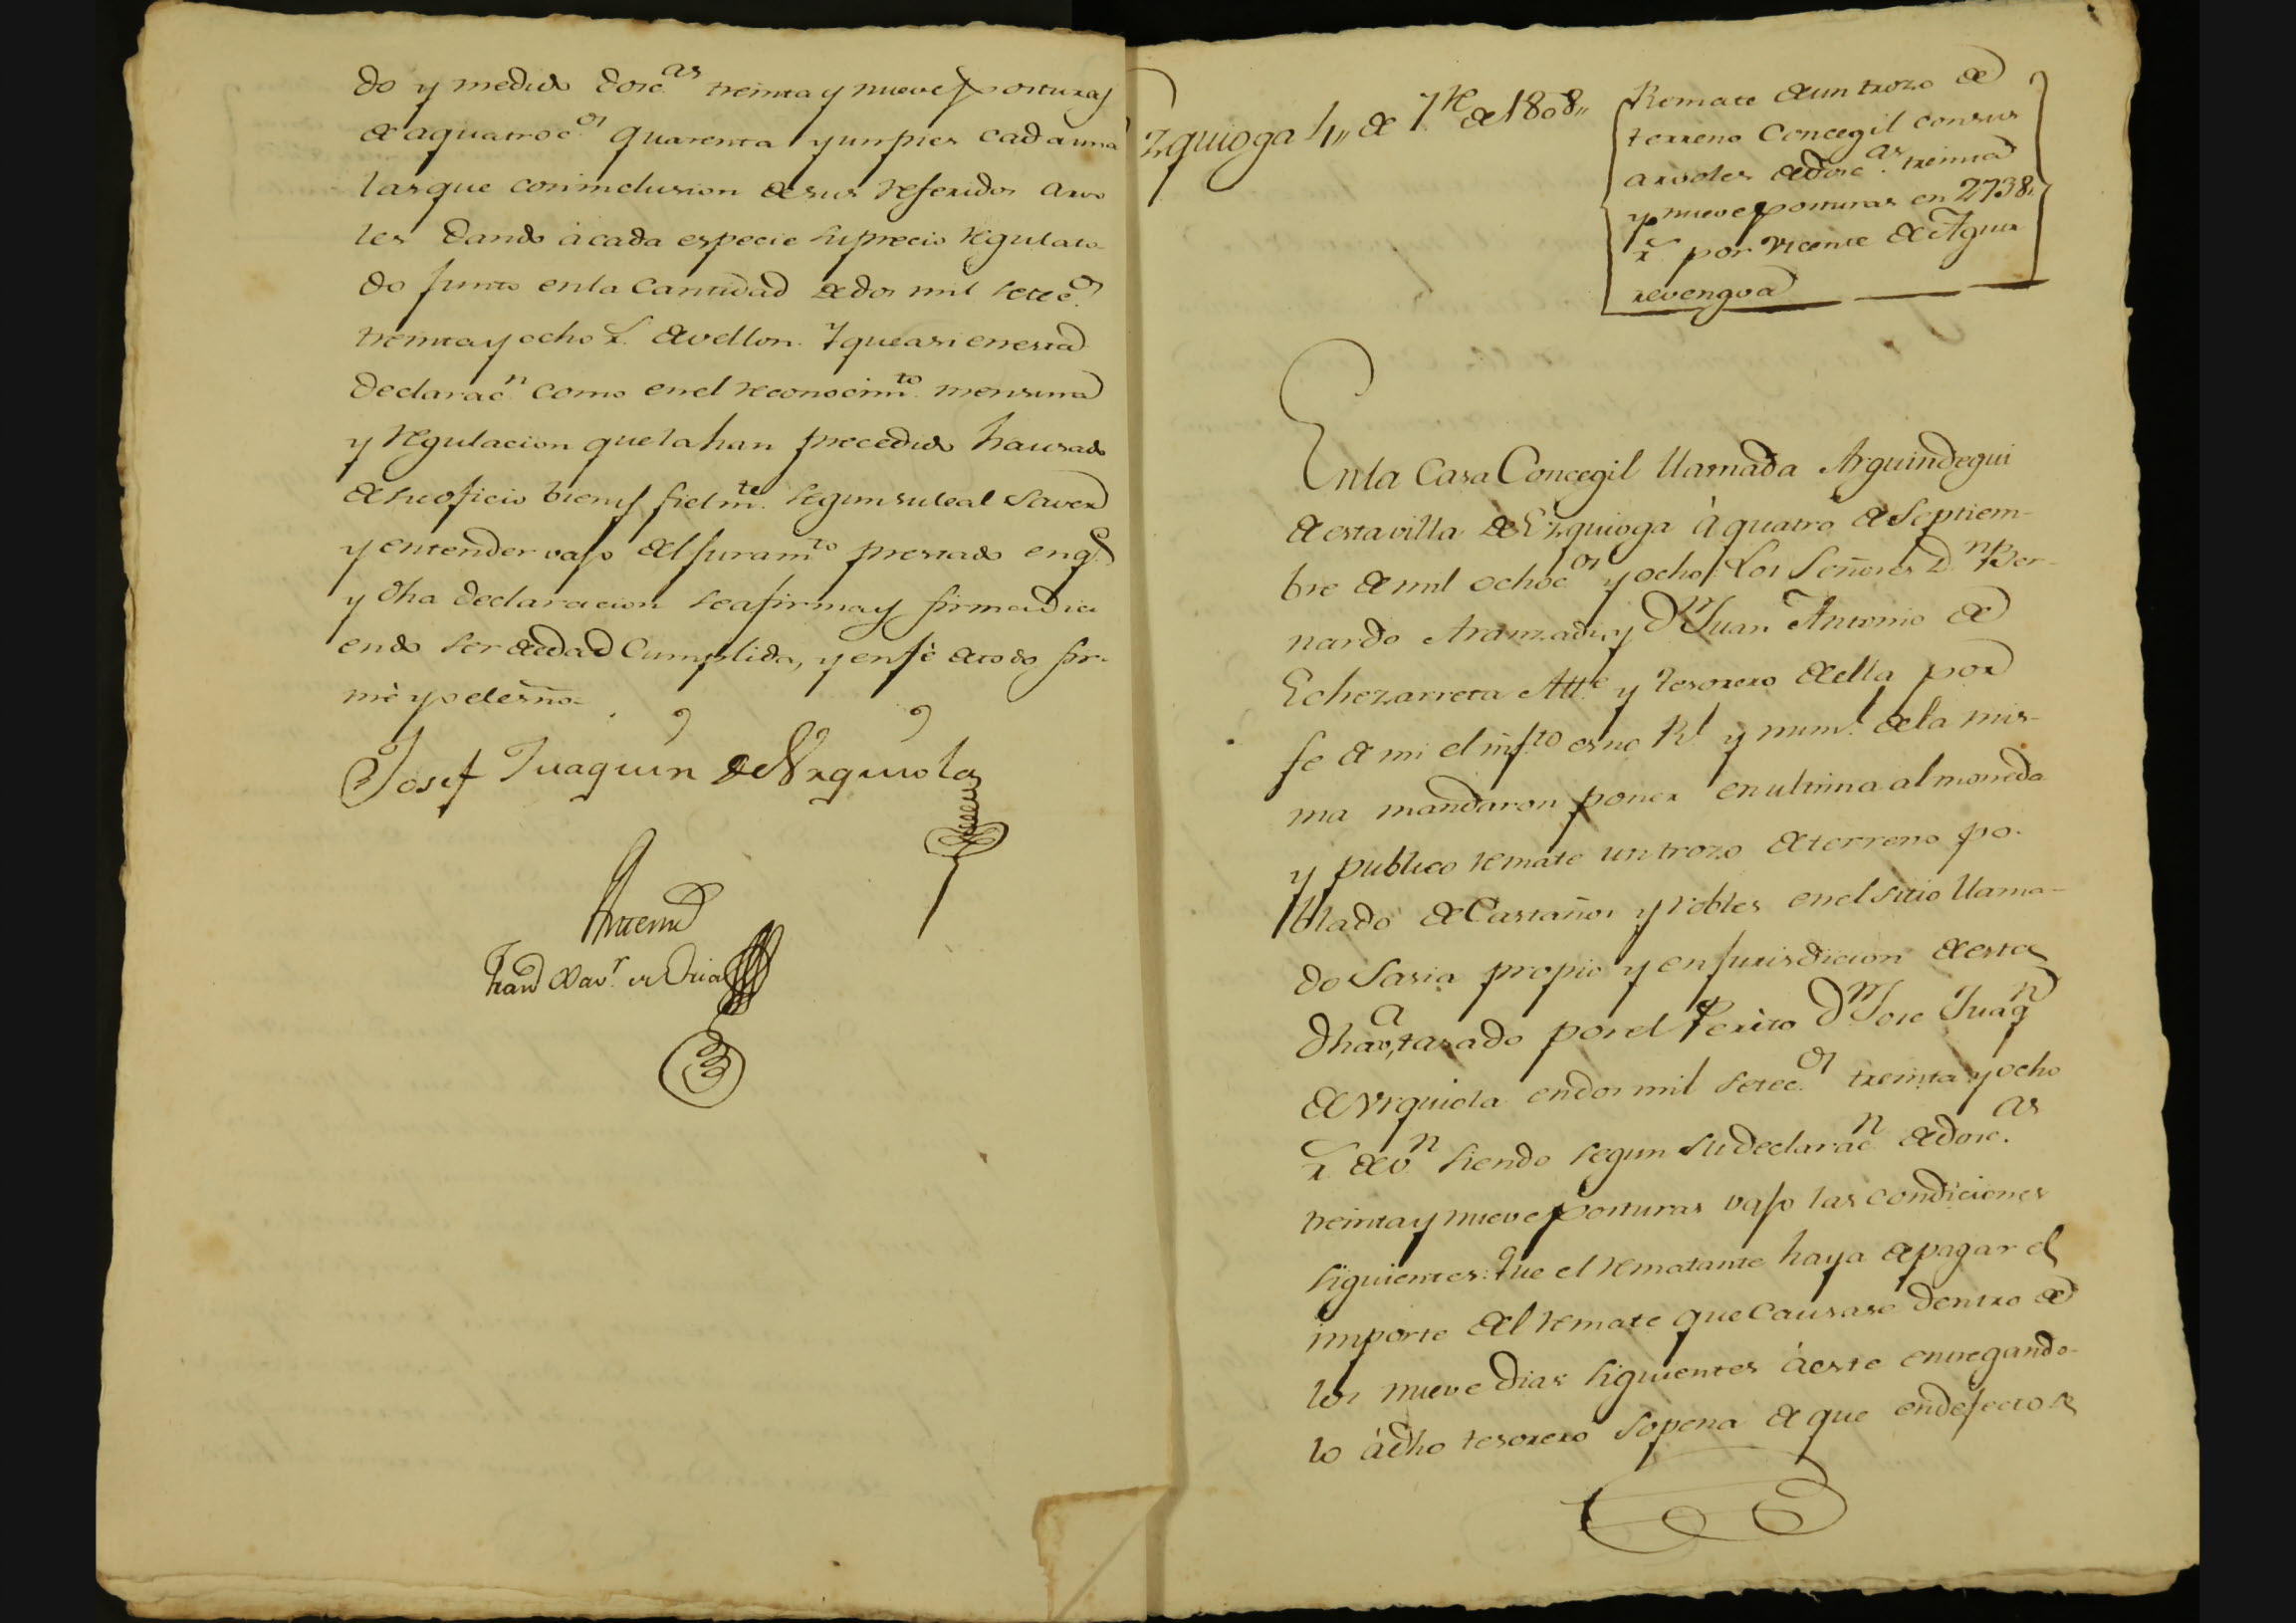 do y medido dosc.as treinta y nueve posturas
de a quatroc.os quarenta y un pies cada una
las que con inclusion de sus referidos arvo
les dando à cada especie su precio regulato
do junto en la cantidad de dos mil setec.os
treinta y ocho r.s de vellon. Y que asi en esta
declarac.n como en el reconocim.to mensura
y regulacion que la han precedido ha usado
de su oficio bien y fielm.te segun su leal saver
y entender vajo del juram.to prestado en q.e
y dha declaracion se afirma y firma dici
endo ser de edad cumplida, y en fè de todo fir-
mè yo el esno=
Josef Juaquin de Urquiola
Antemi
Fran.co Xav.r de Oria
Ezquioga 4,, de 7.re de 1808,,
Remate de un trozo de
terreno Concegil con sus
arvoles de dosc.as treinta
y nueve posturas en 2738,,
r.s por Vicente de Aguir
revengoa
En la Casa Concegil llamada Arguindegui
de esta villa de Ezquioga à quatro de Septiem-
bre de mil ochoc.os y ocho: Los Señores D.n Ber-
nardo Aranzadi y D.n Juan Antonio de
Echezarreta Alc.e y Tesorero de ella por
fe de mi el infr.to esno R.l y num.l de la mis-
ma mandaron poner en ultima almoneda
y publico remate un trozo de terreno po-
blado de Castaños y robles en el sitio llama-
do Sasia propio y en jurisdicion de esta
dha v.a, tasado por el Perito D.n Jose Juaq.n
de Urquiola en dos mil setec.os treinta y ocho
r.s de v.n siendo segun su declarac.n de dosc.as
treinta y nueve posturas vajo las condiciones
siguientes: Que el rematante haya de pagar el
importe del remate que causase dentro de
los nueve dias siguientes à este entregando-
lo à dho tesorero sopena de que en defecto se